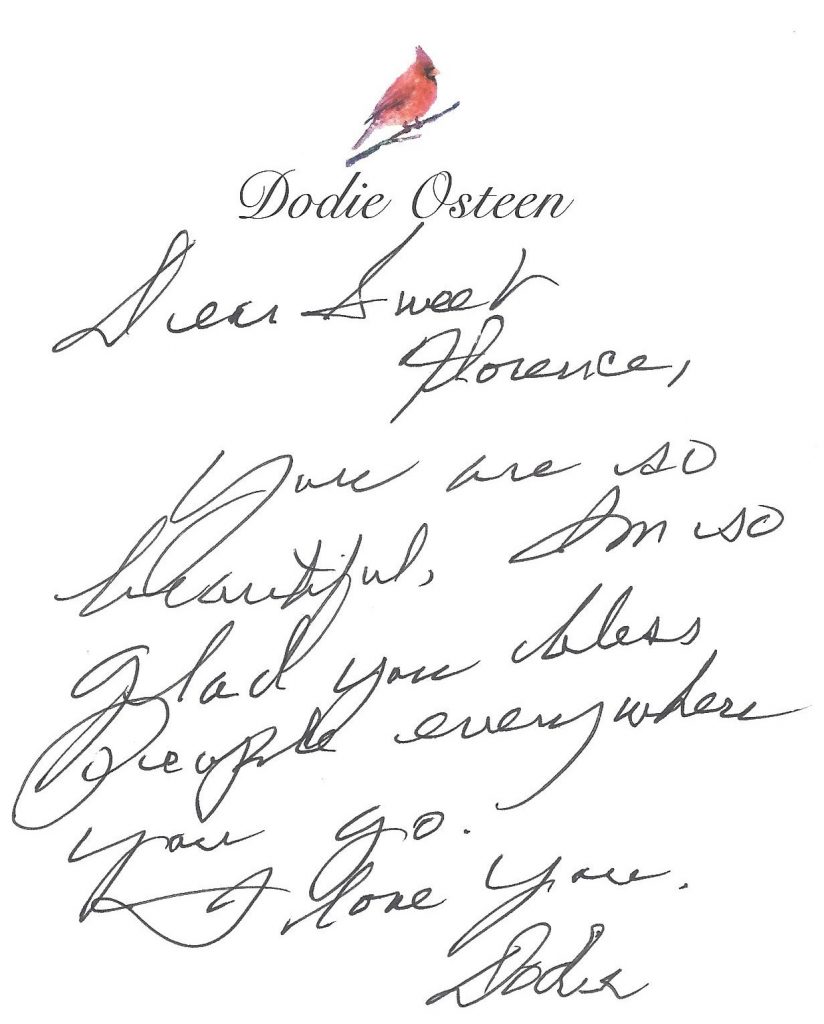 Dodie Osteen
Dear Sweet
Florence,
You are so
beautiful, Im so
glad you bless
people everywhere
you go.
I love you.
Dodie